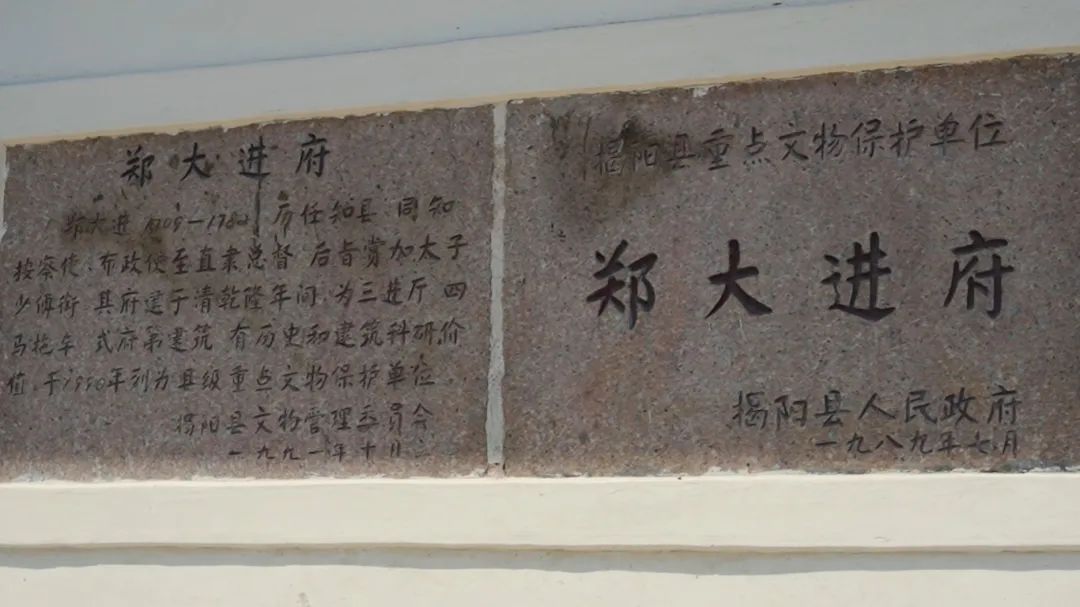 郑大进府
郑大进 1709—1782 历任知县 同知
按察使、布政使至直隶总督 后旨赏加太子
少傅衔 其府建于清乾隆年间 为三进厅 四
马拖车 式府第建筑 有历史和建筑科研价
值,于1990年列为县级重点文物保护单位
揭阳县文物管理委员会
一九九一年十月
揭阳县重点文物保护单位
郑大进府
揭阳县人民政府
一九八九年七月